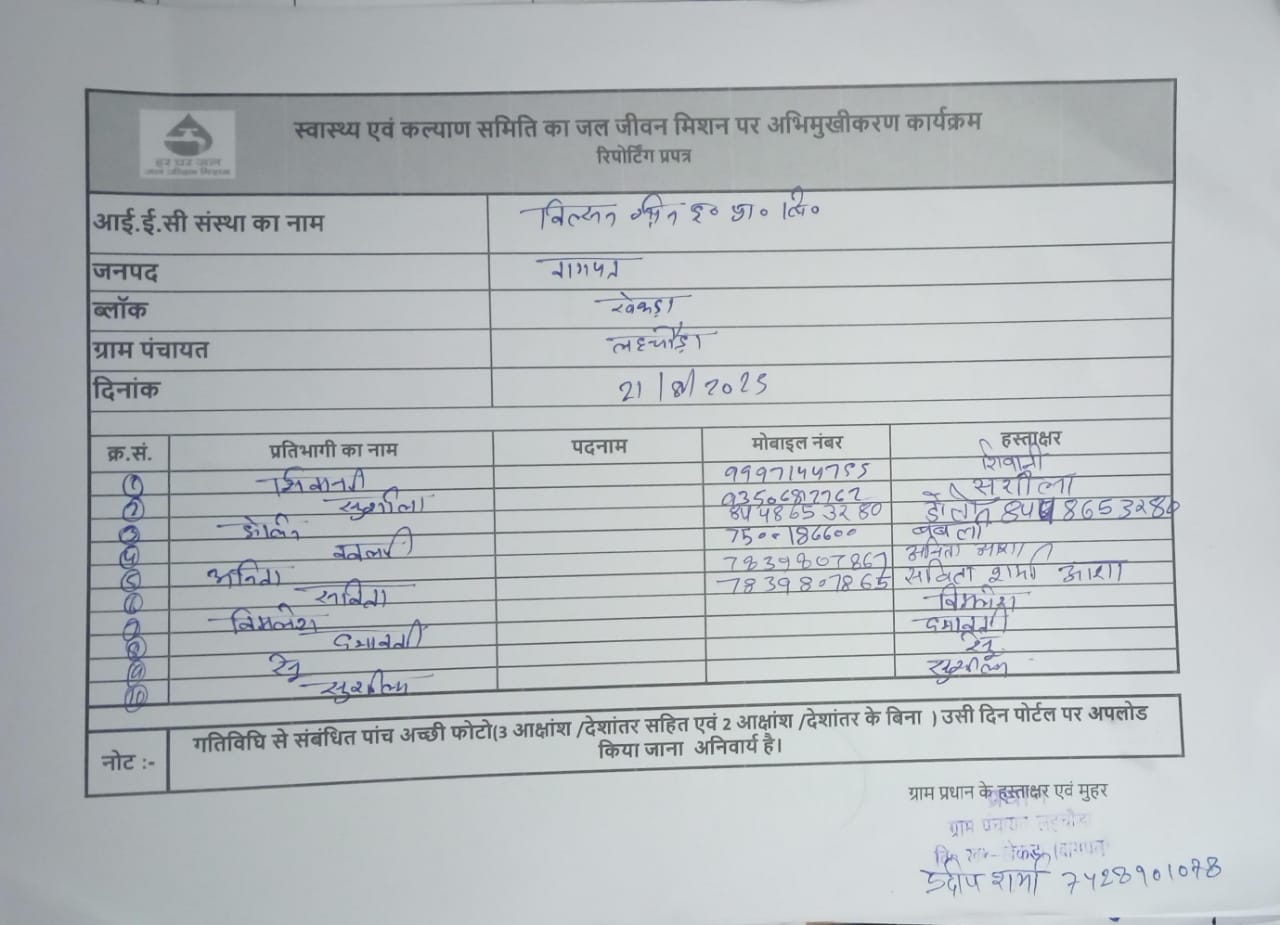 हर घर जल
जल जीवन मिशन
स्वास्थ्य एवं कल्याण समिति का जल जीवन मिशन पर अभिमुखीकरण कार्यक्रम
रिपोर्टिंग प्रपत्र
आई.ई.सी संस्था का नाम विल्सन ग्रीन इ० प्रा० लि०
जनपद बागपत
ब्लॉक खेकड़ा
ग्राम पंचायत लहचौड़ा
दिनांक 21/8/2025
क्र.सं. प्रतिभागी का नाम पदनाम मोबाइल नंबर हस्ताक्षर
1 शिवानी 9997144755 शिवानी
2 सुशीला 9350682762 सुशीला
3 डोली 8448653280 डोली 8448653280
4 बबली 7500186600 बबली
5 अनिता 7839807867 अनिता आशा
6 सविता 7839807865 सविता शर्मा आशा
7 बिमलेश बिमलेश
8 दयावती दयावती
9 रेनू रेनू
10 सुशीला सुशीला
नोट :- गतिविधि से संबंधित पांच अच्छी फोटो(3 आक्षांश /देशांतर सहित एवं 2 आक्षांश /देशांतर के बिना ) उसी दिन पोर्टल पर अपलोड
किया जाना अनिवार्य है।
ग्राम प्रधान के हस्ताक्षर एवं मुहर
ग्राम पंचायत लहचौड़ा
प्रदीप शर्मा 7428901078